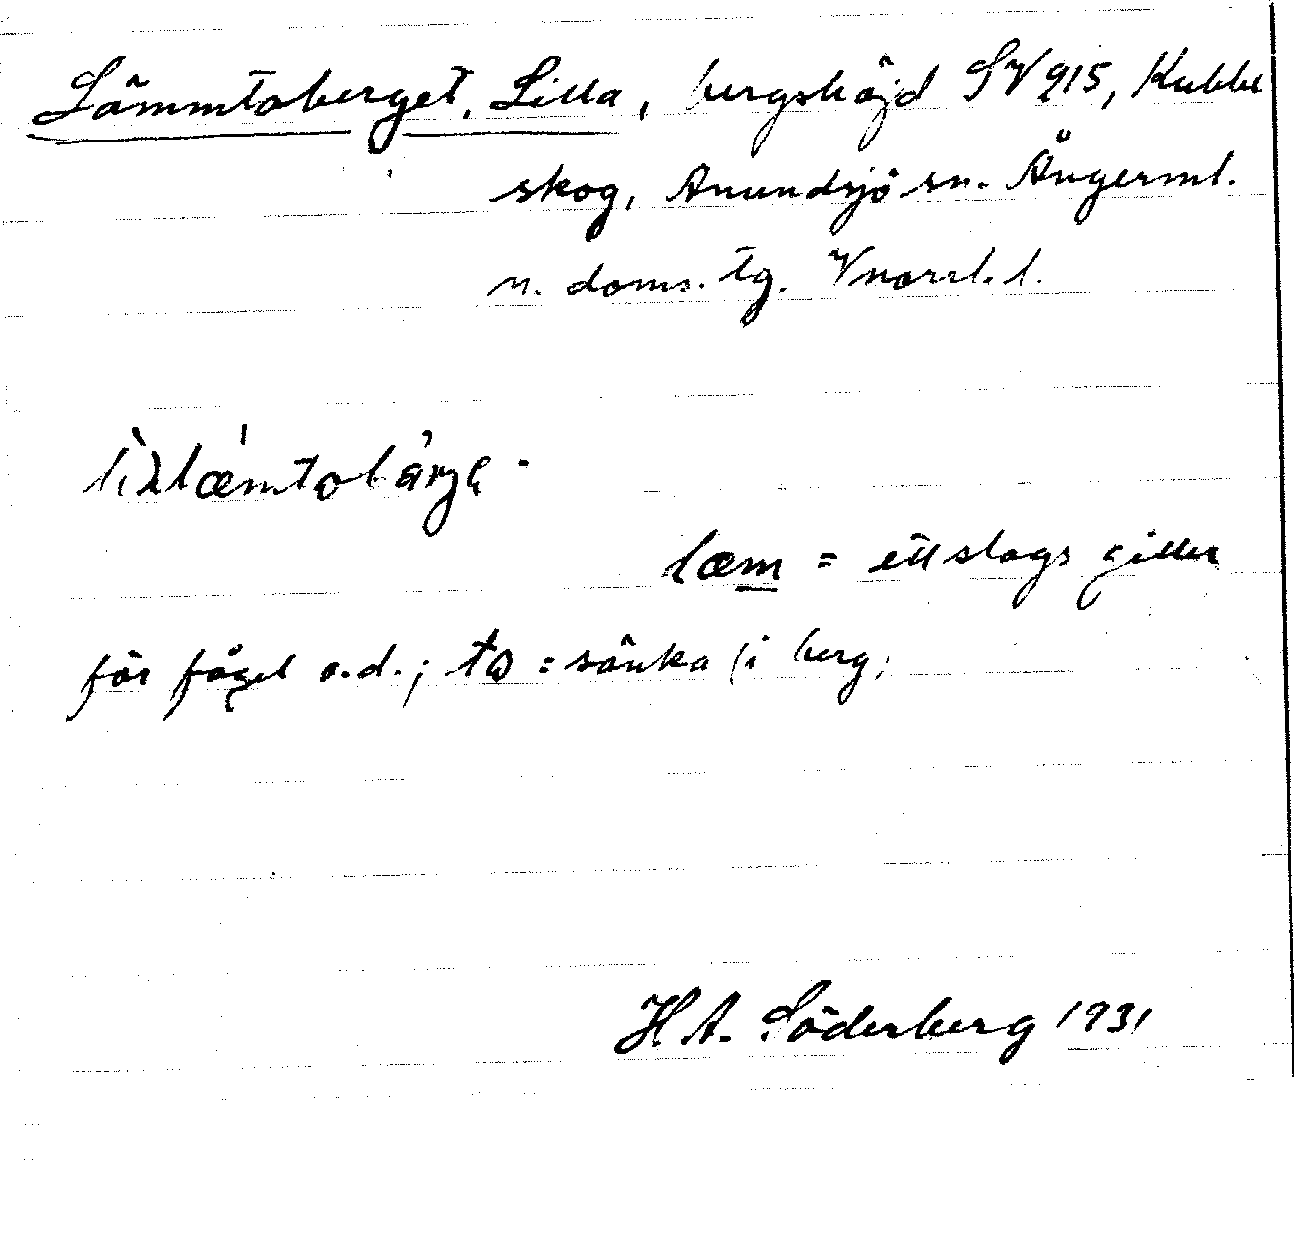 Lämmtoberget, Lilla, bergshöjd SV 915, Kubbe
skog, Anundsjö sn. Ångerml.
n. doms. tg. Vnorrl. l.
læm = ett slags giller
för fågel o.d.; to = sänka (i berg)
H. A. Söderberg 1931